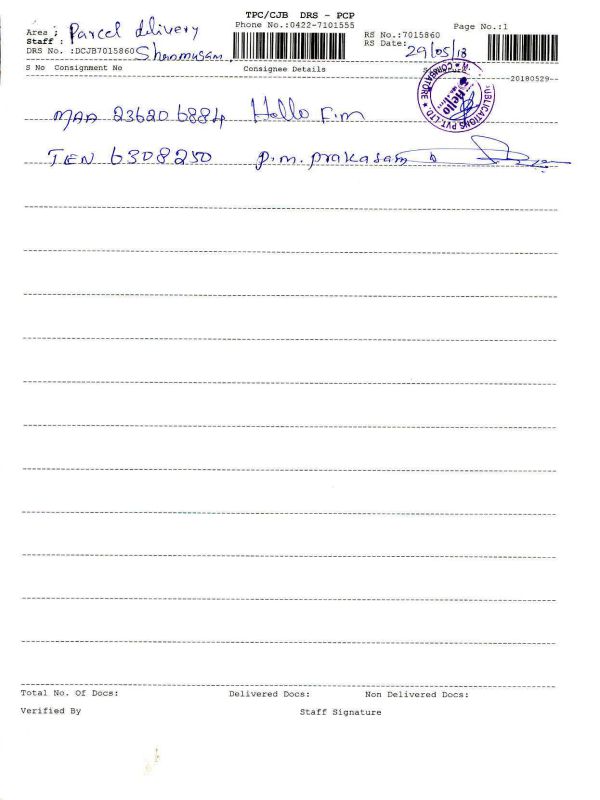 TPC/CJB DRS - PCP
Phone No.:0422-7101555
Area : Parcel delivery
Staff :
DRS No. :DCJB7015860 Shanmugam.
RS No.:7015860
RS Date: 29/05/18
Page No.:1
S No Consignment No Consignee Details
20180529
MAA 236206884 Hello F.m
TEN 6308250 P.m. prakasam
Total No. Of Docs: Delivered Docs: Non Delivered Docs:
Verified By Staff Signature
Hello
PUBLICATIONS PVT. LTD. ★ COIMBATORE ★